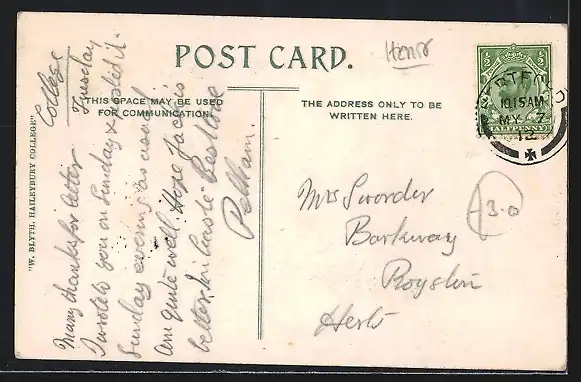 POST CARD.
THIS SPACE MAY BE USED
FOR COMMUNICATION.
THE ADDRESS ONLY TO BE
WRITTEN HERE.
"W. BLYTH, HAILEYBURY COLLEGE"
College
Tuesday
Many thanks for letter
I wrote to you on Sunday & posted it
Sunday evening as usual.
Am quite well. Hope Jack is
better. In haste. Best love
Pelham.
Mrs Sworder
Barkway
Royston
Herts
3.0
HERTFORD
10.15AM
MY 7
12
HALFPENNY